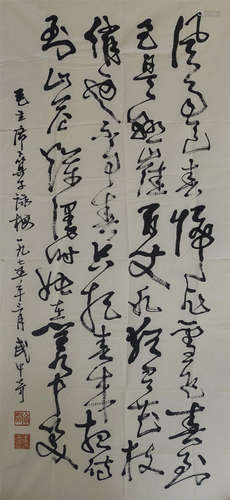 風雨送春歸飛雪迎春到
已是懸崖百丈冰猶有花枝
俏俏也不争春只把春来報待
到山花爛漫時她在叢中笑
毛主席卜算子詠梅一九七五年三月武中奇